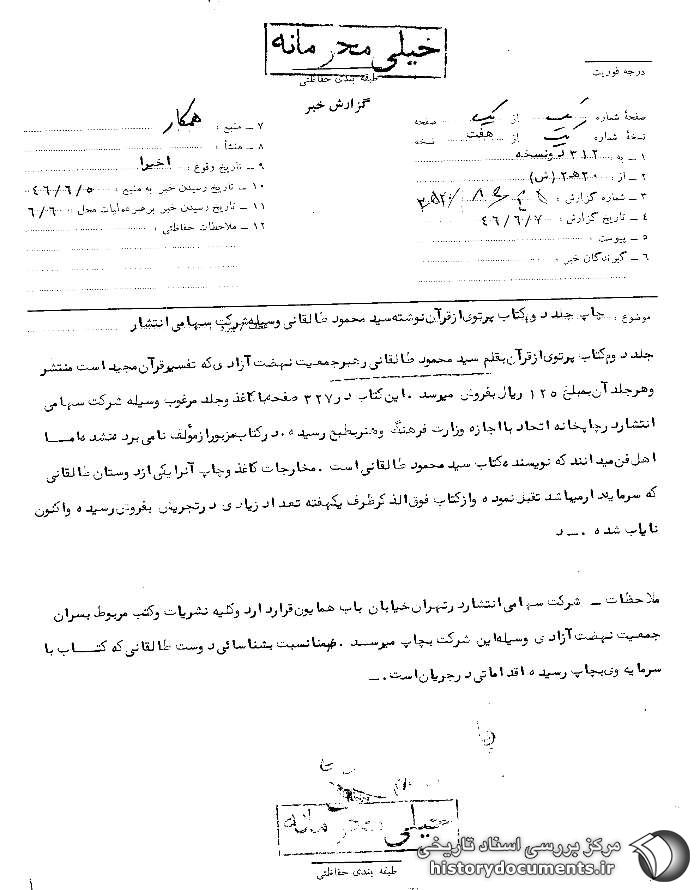 خیلی محرمانه
طبقه بندی حفاظتی
درجه فوریت
گزارش خبر
صفحهٔ شماره یک از یک صفحه
نسخهٔ شماره یک از هفت نسخه
۱ – به : ۳۱۲ دونسخه
۲ – از : ۲۰ه‍۲ (ش)
۳ – شماره گزارش :
۴ – تاریخ گزارش : ۴۶/۶/۷
۵ – پیوست :
۶ – گیرندگان خبر :
۷ – منبع : همکار
۸ – منشأ :
۹ – تاریخ وقوع : اخیرا
۱۰ – تاریخ رسیدن خبر به منبع : ۴۶/۶/۵
۱۱ – تاریخ رسیدن خبر برهبر عملیات محل : ۶/۶
۱۲ – ملاحظات حفاظتی :
موضوع : چاپ جلد دوم کتاب پرتوی از قرآن نوشته سید محمود طالقانی وسیله شرکت سهامی انتشار
جلد دوم کتاب پرتوی از قرآن بقلم سید محمود طالقانی رهبر جمعیت نهضت آزادی که تفسیر قرآن مجید است منتشر
و هر جلد آن بمبلغ ۱۲۵ ریال بفروش میرسد . این کتاب در ۳۲۷ صفحه با کاغذ و جلد مرغوب وسیله شرکت سهامی
انتشار در چاپخانه اتحاد با اجازه وزارت فرهنگ و هنر بطبع رسیده . در کتاب مزبور از مؤلف نامی برده نشده اما
اهل فن میدانند که نویسنده کتاب سید محمود طالقانی است . مخارجات کاغذ و چاپ آنرا یکی از دوستان طالقانی
که سرمایه‌دار میباشد تقبل نموده و از کتاب فوق الذکر ظرف یکهفته تعداد زیادی در تجریش بفروش رسیده و اکنون
نایاب شده . – د
ملاحظات – شرکت سهامی انتشار در تهران خیابان باب همایون قرار دارد و کلیه نشریات و کتب مربوط بسران
جمعیت نهضت آزادی وسیله این شرکت بچاپ میرسد . ضمنا نسبت بشناسائی دوست طالقانی که کتاب با
سرمایه وی بچاپ رسیده اقداماتی در جریان است . –
خیلی محرمانه
طبقه بندی حفاظتی
مرکز بررسی اسناد تاریخی
historydocuments.ir